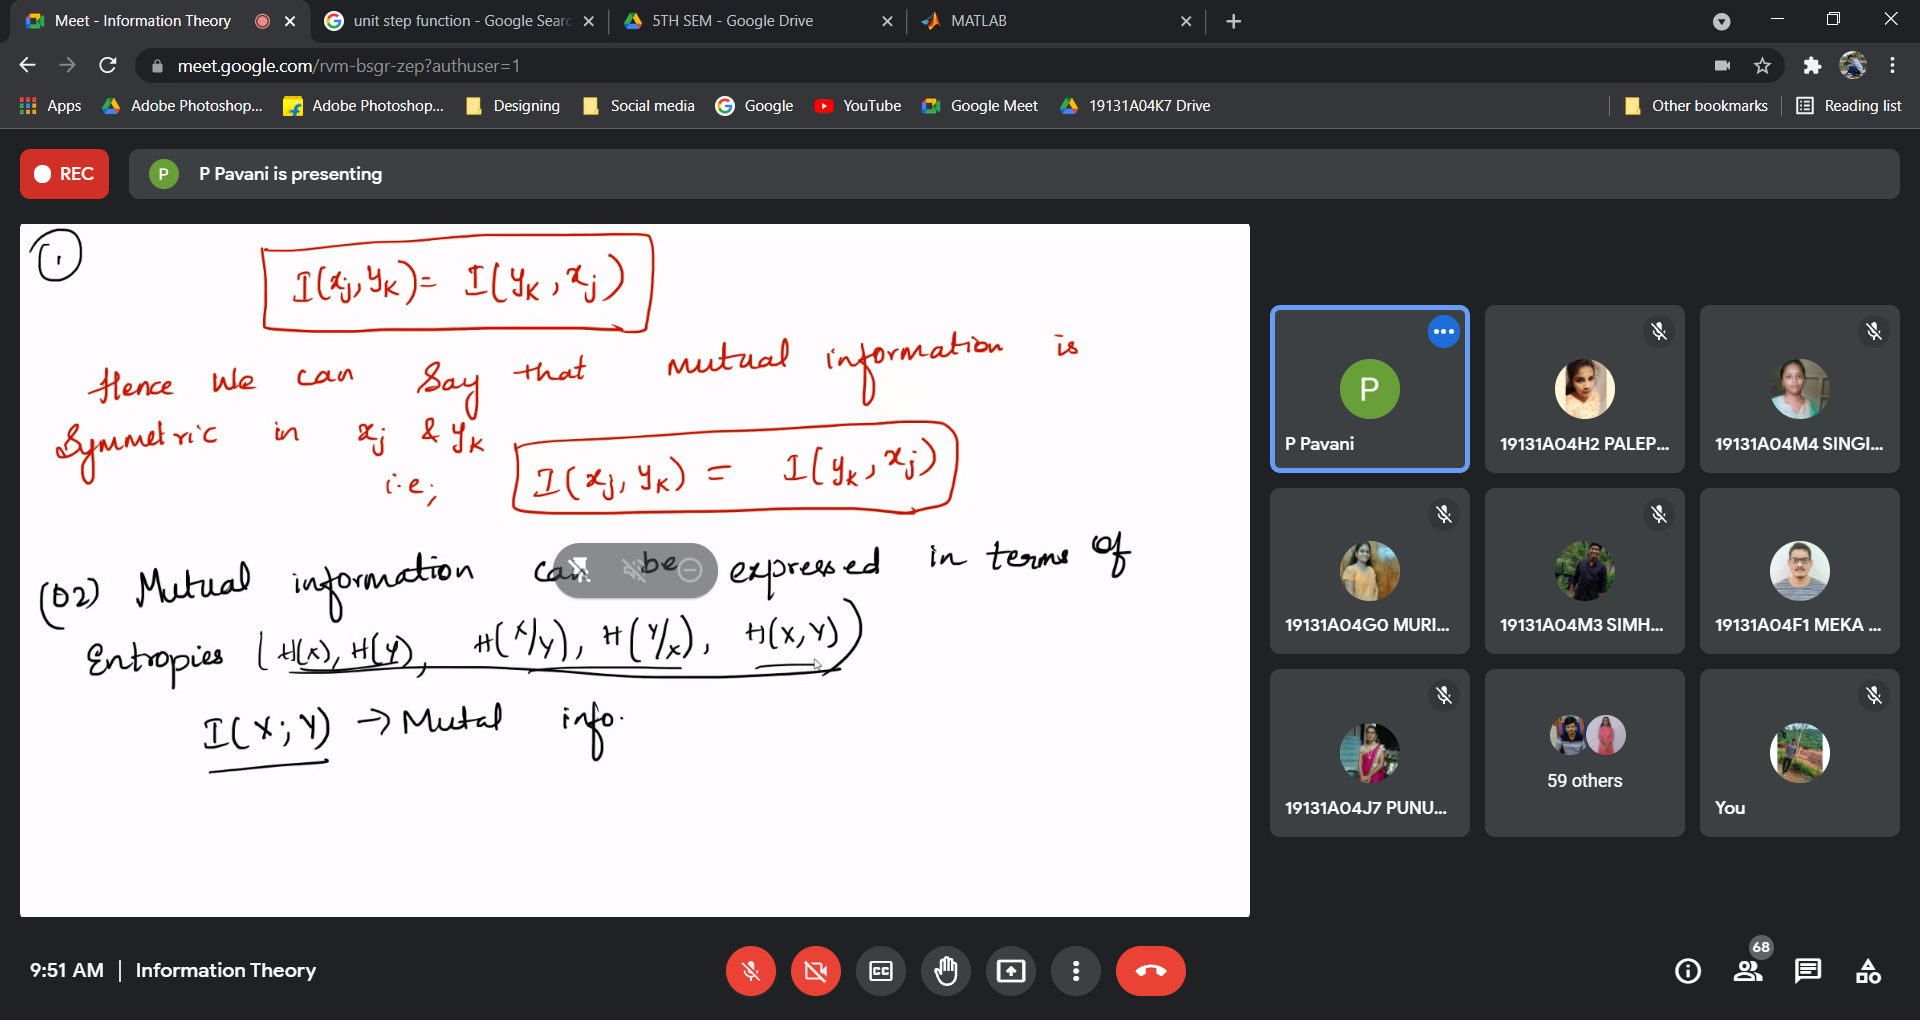 Meet - Information Theory
unit step function - Google Searc
5TH SEM - Google Drive
MATLAB
meet.google.com/rvm-bsgr-zep?authuser=1
Apps
Adobe Photoshop...
Adobe Photoshop...
Designing
Social media
Google
YouTube
Google Meet
19131A04K7 Drive
Other bookmarks
Reading list
REC
P
P Pavani is presenting
1
I(xj, yK) = I(yK, xj)
Hence We can Say that mutual information is
Symmetric in xj & yK
i.e; I(xj, yK) = I(yK, xj)
(02) Mutual information can be expressed in terms of
Entropies (H(X), H(Y), H(X/Y), H(Y/X), H(X,Y))
I(X; Y) → Mutal info.
P
P Pavani
19131A04H2 PALEP...
19131A04M4 SINGI...
19131A04G0 MURI...
19131A04M3 SIMH...
19131A04F1 MEKA ...
19131A04J7 PUNU...
59 others
You
9:51 AM | Information Theory
CC
68